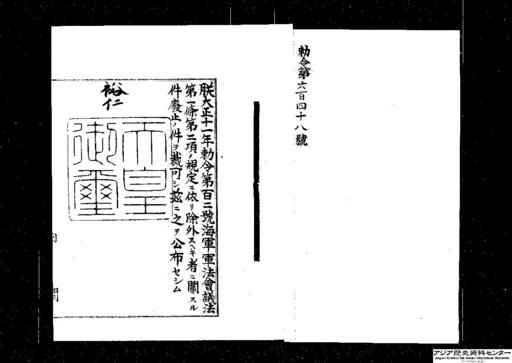 勅令第六百四十八號
朕大正十一年勅令第百二號海軍軍法會議法
第一條第二項ノ規定ニ依リ除外スヘキ者ニ關スル
件廢止ノ件ヲ裁可シ玆ニ之ヲ公布セシム
裕仁
天皇
御璽
アジア歴史資料センター
Japan Center for Asian Historical Records